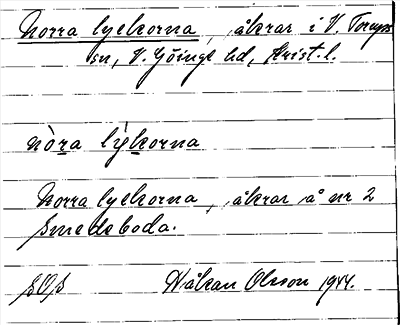 Norra lyckorna, åkrar i V. Torups
sn, V. Göinge hd, Krist. l.
nòra lỳkorna
Norra lyckorna, åkrar å nr 2
Smedsboda.
SOS Håkan Olsson 1944.